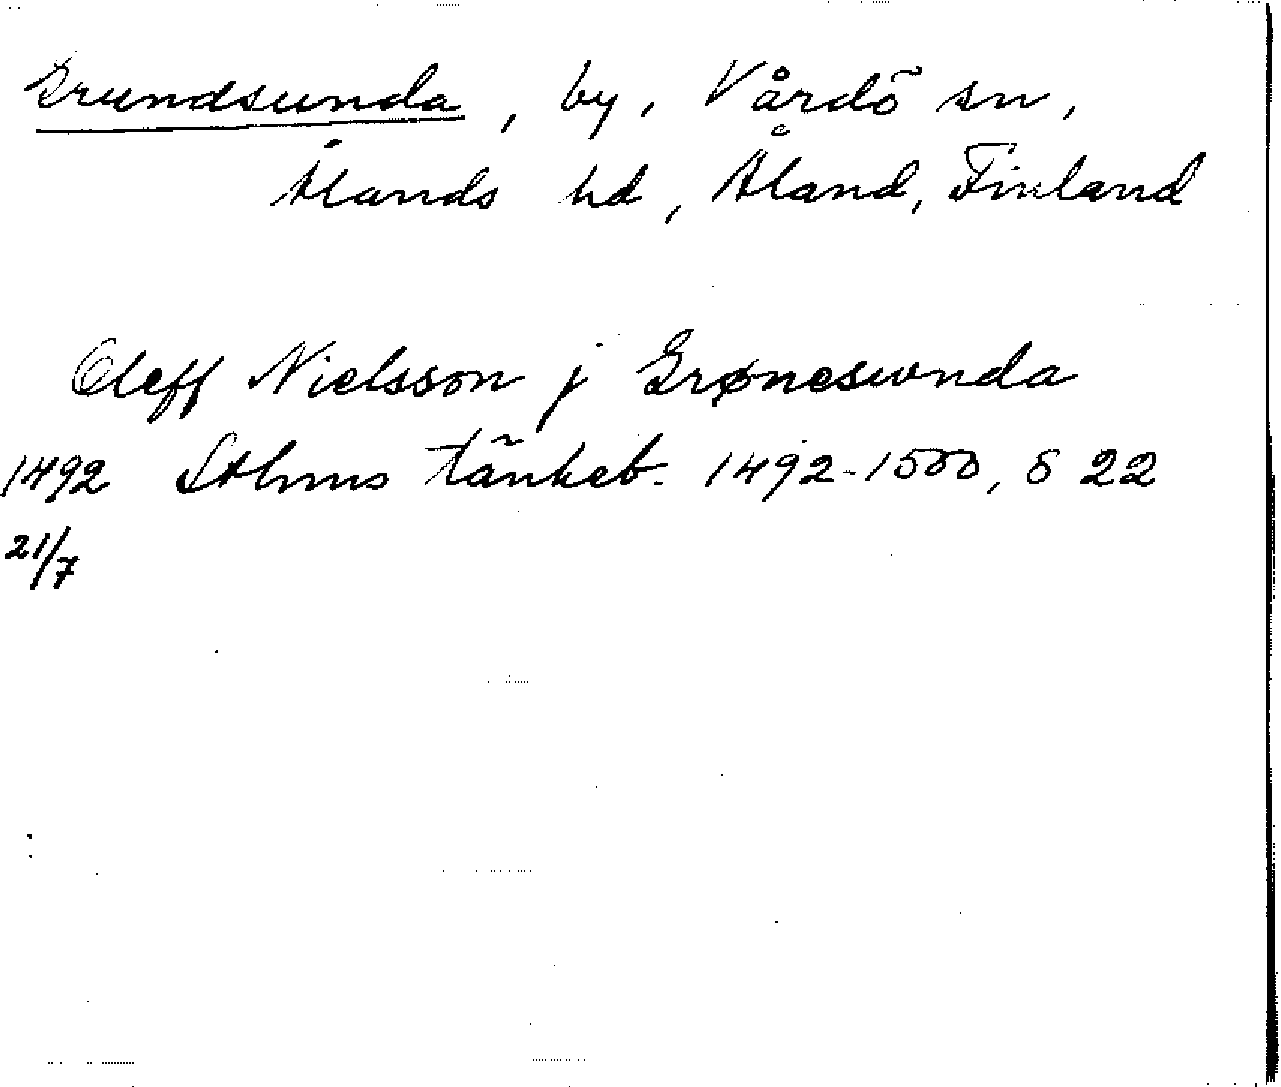 Grundsunda, by, Vårdö sn,
Ålands hd, Åland, Finland
Oleff Nielsson j Grønesunda
1492 Sthms tänkeb. 1492-1500, s 22
21/7